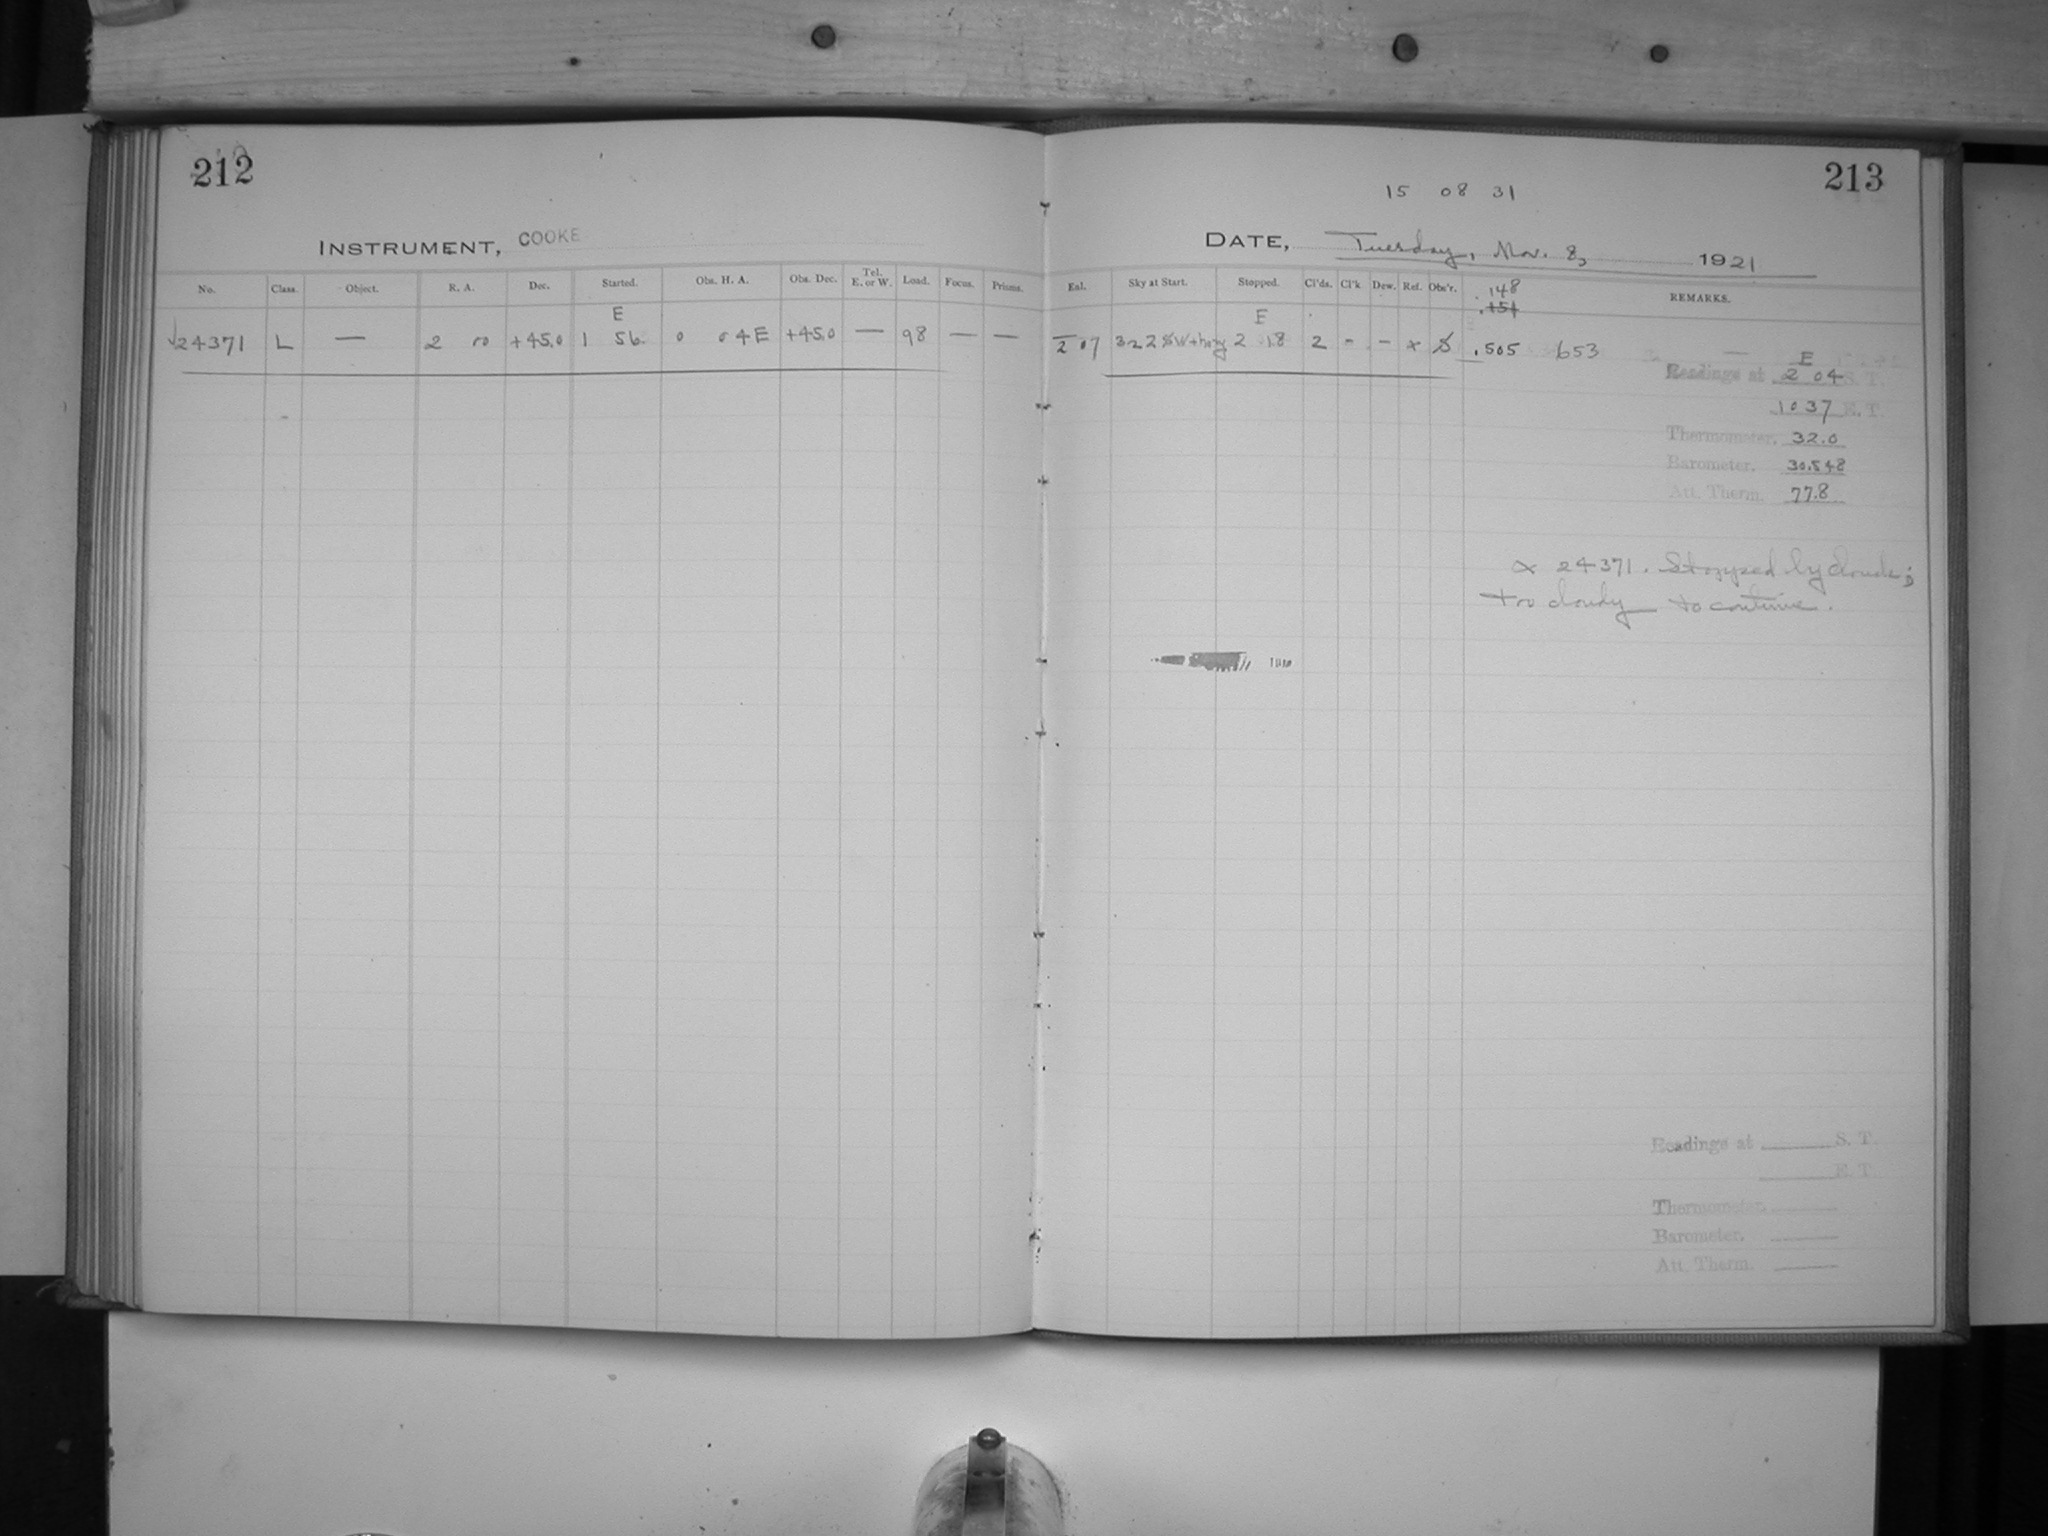 212
INSTRUMENT, COOKE
No. Class. Object. R. A. Dec. Started. Obs. H. A. Obs. Dec. Tel. E. or W. Load. Focus. Prisms.
E
√24371 L — 2 00 +45.0 1 56 0 04E +45.0 — 98 — —
213
15 08 31
DATE, Tuesday, Nov. 8, 1921
Exl. Sky at Start. Stopped. Cl'ds. Cl'k. Dew. Ref. Obs'r. REMARKS.
.148
.151
E
2 07 322 2 18 2 - - x .505 653
E
Readings at 2 04 S. T.
10 37 E. T.
Thermometer. 32.0
Barometer. 30.548
Att. Therm. 77.8
x 24371. Stopped by clouds;
too cloudy to continue.
Readings at S. T.
E. T.
Thermometer.
Barometer.
Att. Therm.